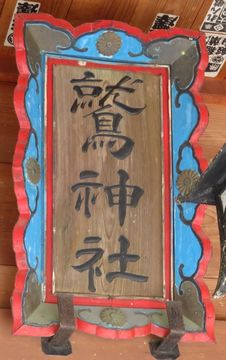 鷲神社